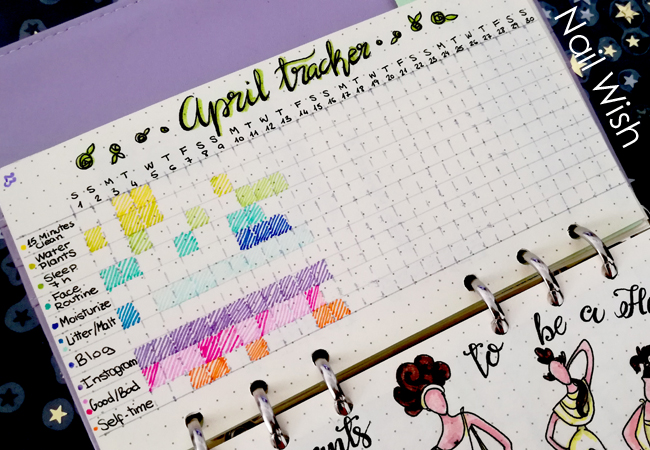 April tracker
S S M T W T F S S M T W T F S S M T W T F S S M T W T F S S
1 2 3 4 5 6 7 8 9 10 11 12 13 14 15 16 17 18 19 20 21 22 23 24 25 26 27 28 29 30
15 Minutes
Clean
Water
Plants
Sleep
7h
Face
Routine
Moisturize
Litter/Malt
Blog
Instagram
Good/Bad
Self-time
to be a
Nail Wish